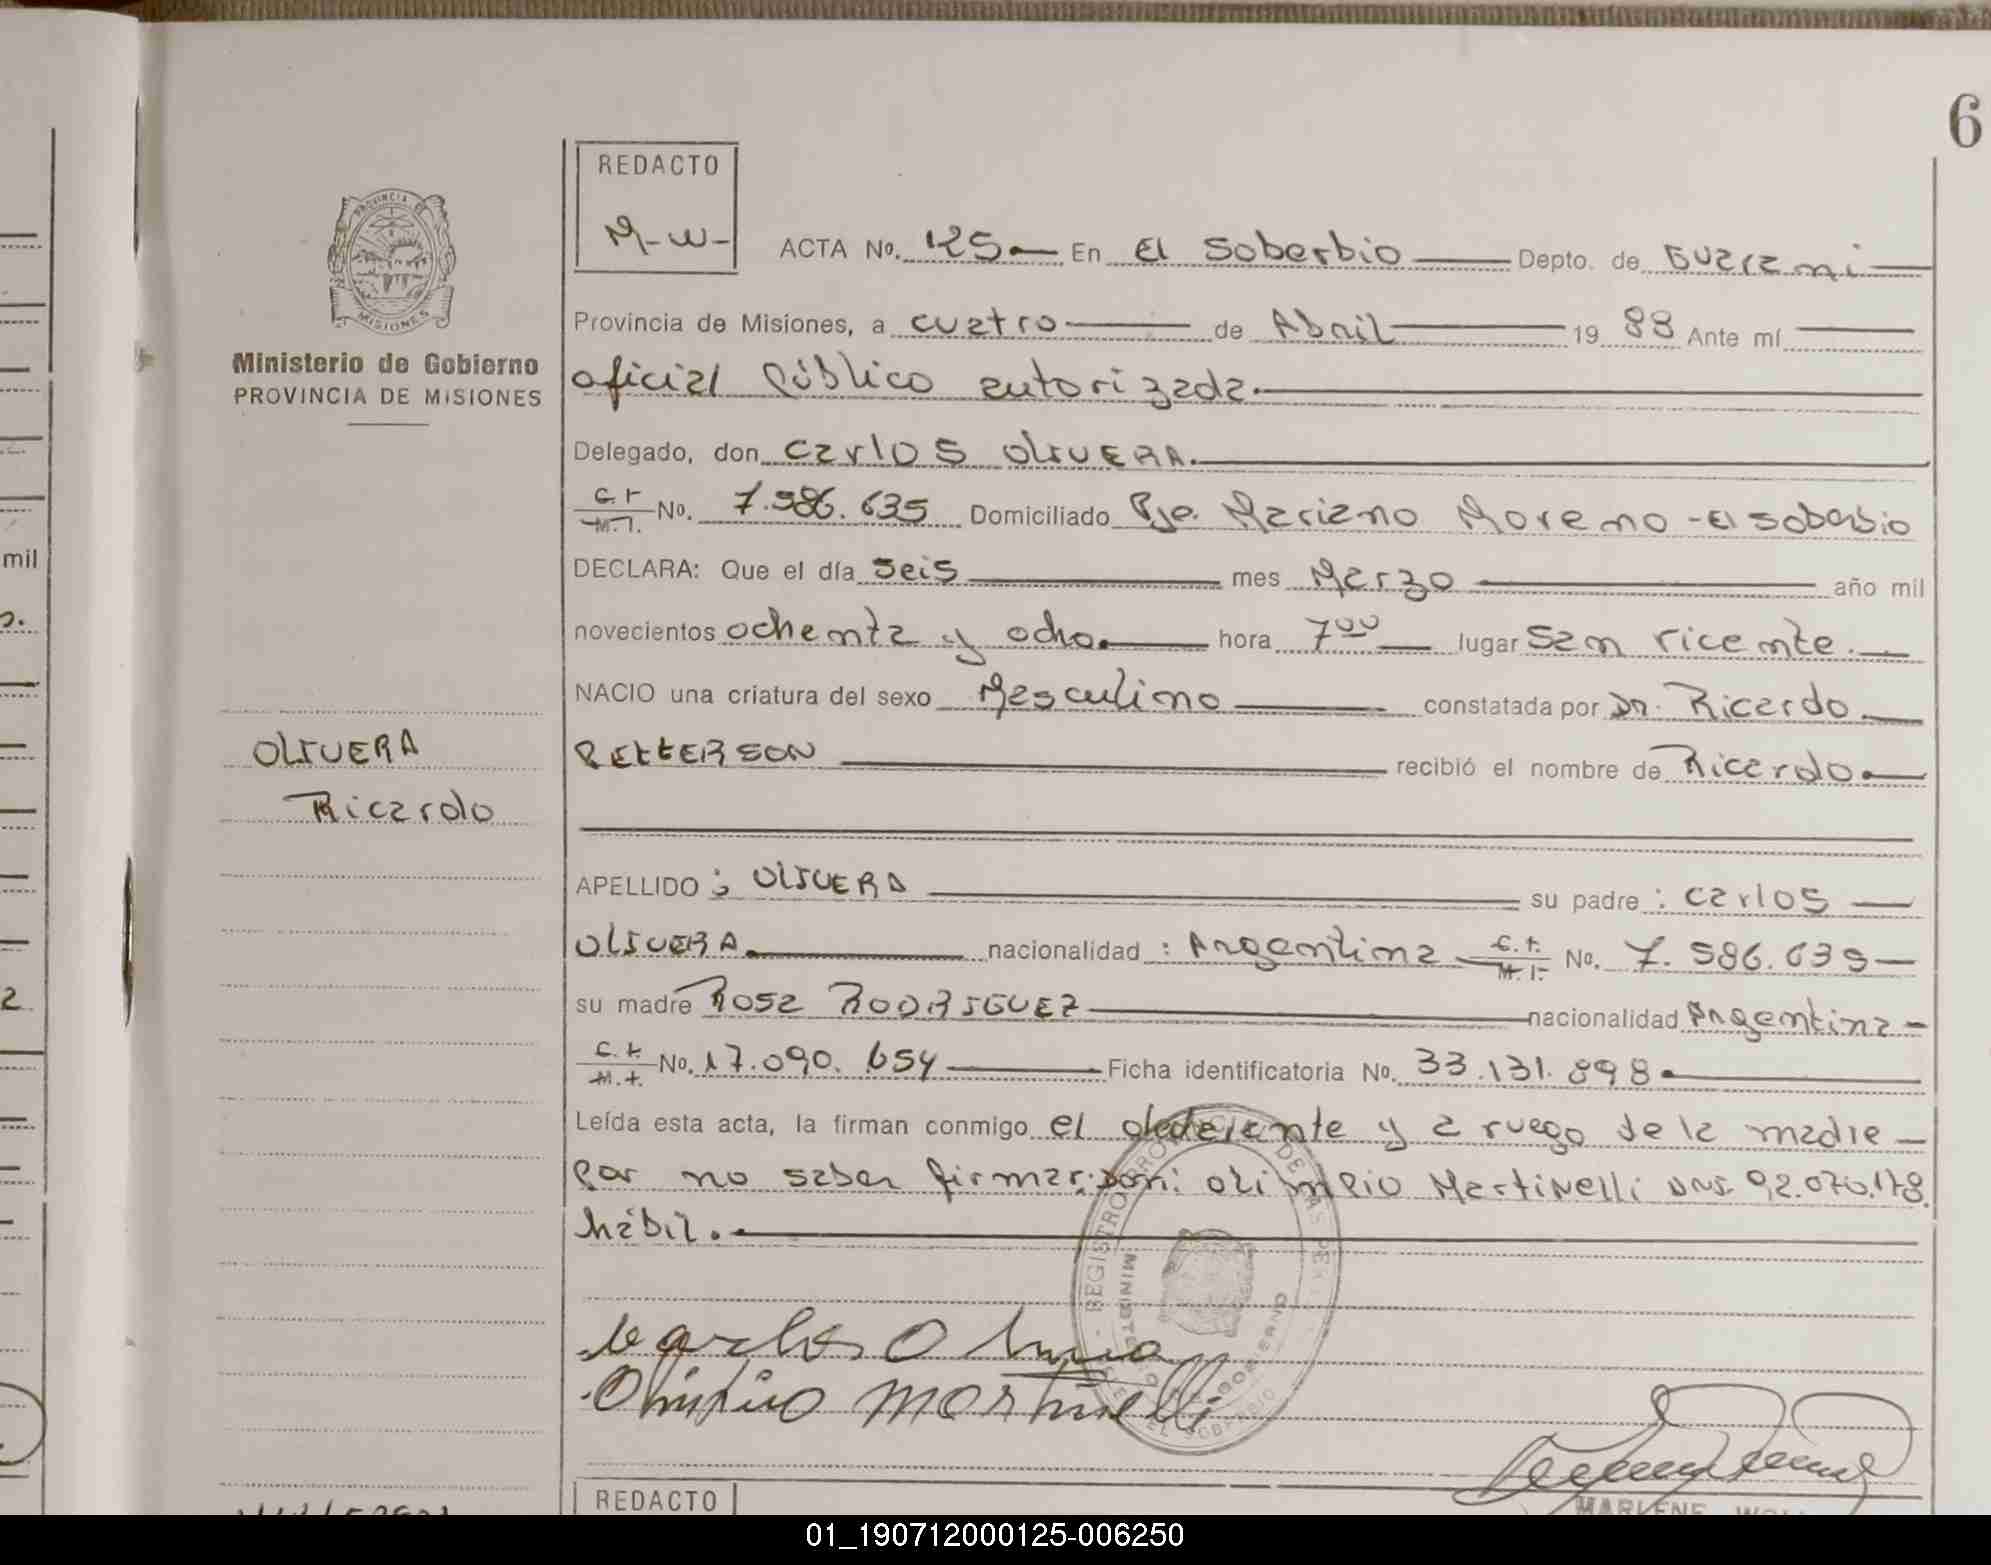 6
REDACTO
M-W-
ACTA No. 125 En El Soberbio Depto. de Guarani
Provincia de Misiones, a cuatro de Abril 19 88 Ante mí
oficial Público autorizada.
Ministerio de Gobierno
PROVINCIA DE MISIONES
Delegado, don Carlos OLIVERA.
C.I. M.I. No. 7.586.635 Domiciliado Pje. Mariano Moreno - El Soberbio
DECLARA: Que el día seis mes Marzo año mil
novecientos ochenta y ocho. hora 7 00 lugar San Vicente.
NACIO una criatura del sexo Masculino constatada por Dr. Ricardo
OLIVERA
Ricardo
PETTERSON recibió el nombre de Ricardo
APELLIDO: OLIVERA su padre: Carlos
OLIVERA. nacionalidad: Argentina C.I. M.I. No. 7.586.635
su madre Rosa RODRIGUEZ nacionalidad Argentina
C.I. M.I. No. 17.090.654 Ficha identificatoria No. 33.131.898
Leída esta acta, la firman conmigo el declarante y a ruego de la madre
por no saber firmar: Don: Olimpio Martinelli DNI. 92.070.178
hábil.
Carlos Olivera
Olimpio Martinelli
MINISTERIO DE GOBIERNO
EL SOBERBIO
MARLENE
REDACTO
mil
01_190712000125-006250